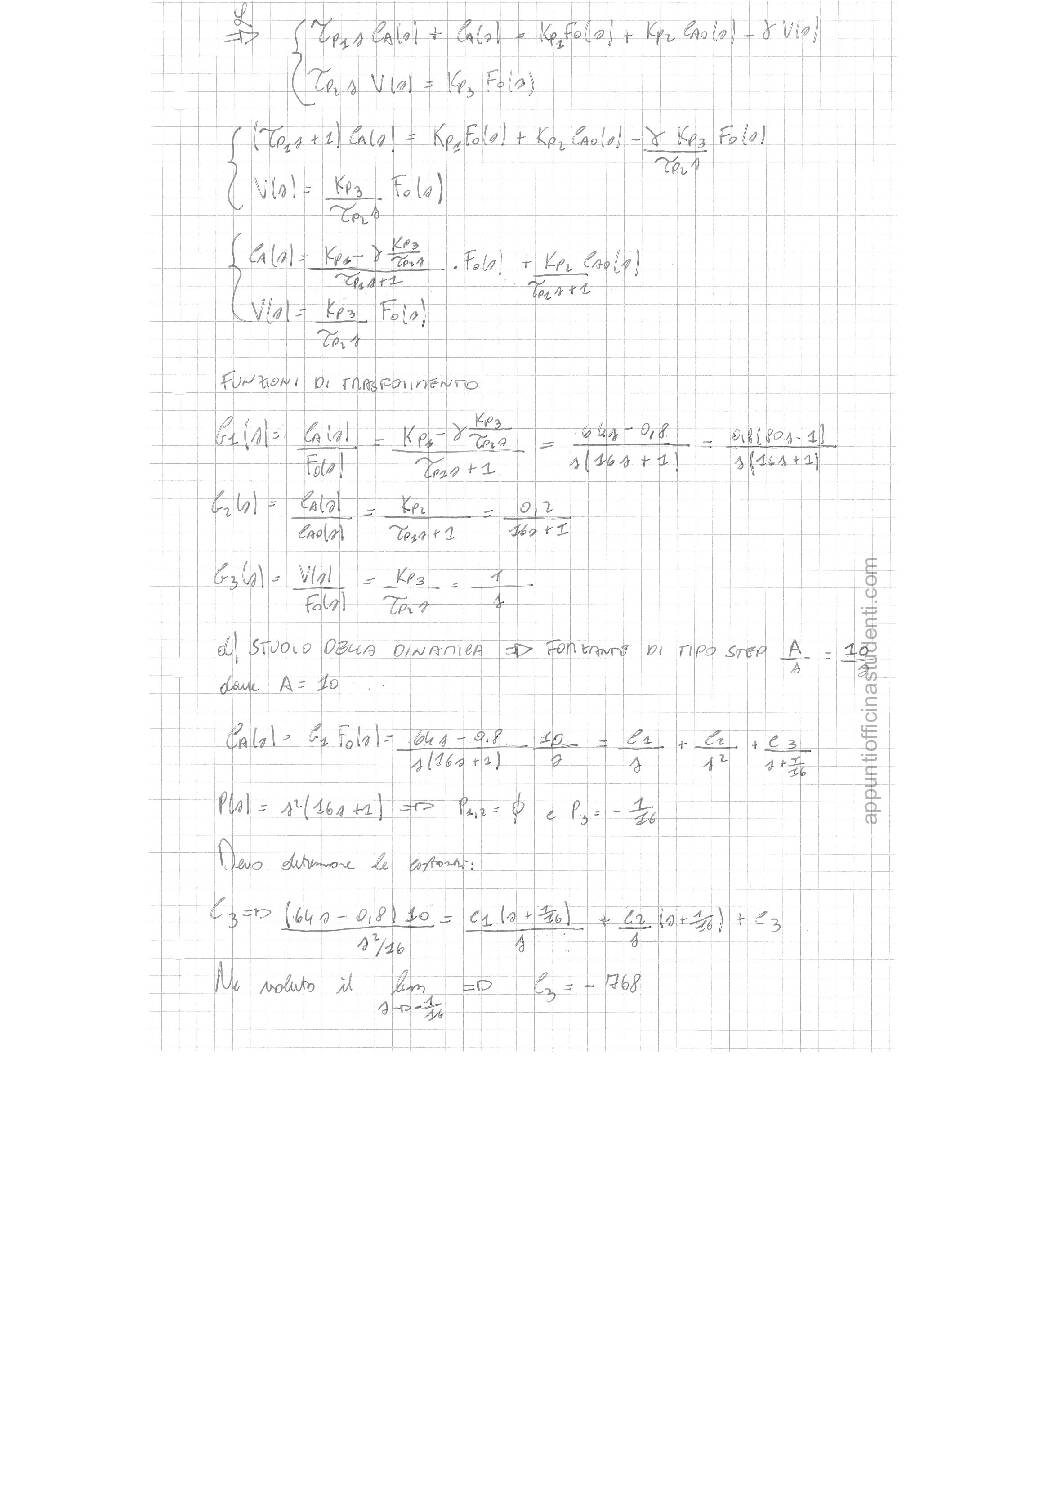 L ⇒ { τp₁ s CA(s) + CA(s) = Kp₁ F₀(s) + Kp₂ CA0(s) - γ V(s)
τp₂ s V(s) = Kp₃ F₀(s)
{ (τp₁ s + 1) CA(s) = Kp₁ F₀(s) + Kp₂ CA0(s) - γ Kp₃/(τp₂ s) F₀(s)
V(s) = Kp₃/(τp₂ s) F₀(s)
{ CA(s) = (Kp₁ - γ Kp₃/(τp₂ s))/(τp₁ s + 1) · F₀(s) + Kp₂ CA0(s)/(τp₁ s + 1)
V(s) = Kp₃/(τp₂ s) F₀(s)
FUNZIONI DI TRASFERIMENTO
G1(s) = CA(s)/F₀(s) = (Kp₁ - γ Kp₃/(τp₂ s))/(τp₁ s + 1) = (64s - 0,8)/(s(16s + 1)) = 0,8(80s - 1)/(s(16s + 1))
G2(s) = CA(s)/CA0(s) = Kp₂/(τp₁ s + 1) = 0,2/(16s + 1)
G3(s) = V(s)/F₀(s) = Kp₃/(τp₂ s) = 1/s
d) STUDIO DELLA DINAMICA ⇒ FORZANTE DI TIPO STEP A/s = 10/s
dove A = 10
CA(s) = G1 F₀(s) = (64s - 0.8)/(s(16s + 1)) 10/s = C1/s + C2/s² + C3/(s + 1/16)
P(s) = s²(16s + 1) ⇒ P1,2 = ϕ e P3 = - 1/16
Devo determinare le costanti:
C3 ⇒ (64s - 0,8) 10/(s²/16) = C1(s + 1/16)/s + C2/s (s + 1/16) + C3
Ne valuto il lim s→-1/16 ⇒ C3 = - 768
appuntiofficinastudenti.com